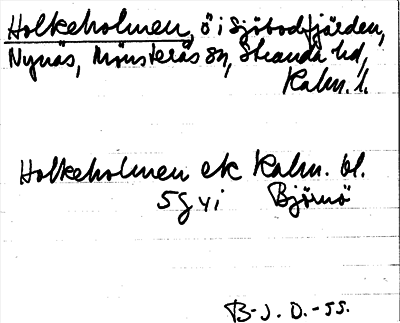 Holkeholmen, ö i Sjöbodfjärden,
Nynäs, Mönsterås sn, Stranda hd,
Kalm. l.
Holkeholmen ek Kalm. bl.
5g vi Björnö
B-J. D.-SS.